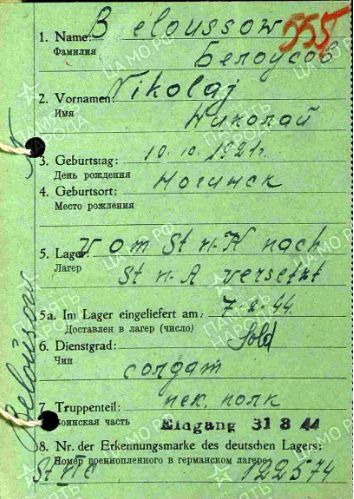 555
1. Name: Beloussow
Фамилия Белоусов
2. Vornamen: Nikolaj
Имя Николай
3. Geburtstag: 10.10.1921г
День рождения
4. Geburtsort: Ногинск
Место рождения
5. Lager: Vom St n-A nach
Лагер St n-A versetzt
5a. Im Lager eingeliefert am: 7-2-44
Доставлен в лагер (число)
6. Dienstgrad: Sold
Чин солдат
7. Truppenteil: пех. полк
Воинская часть Eingang 31 8 44
8. Nr. der Erkennungsmarke des deutschen Lagers:
Номер военнопленного в германском лагере
122574
Beloussow
ЦАМО РФ
ПАМЯТЬ НАРОДА